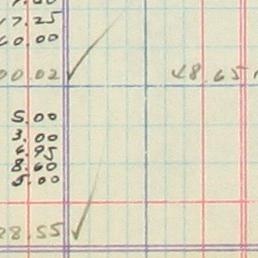 17.25
60.00
00.02 48.65
5.00
3.00
6.95
8.60
5.00
28.55